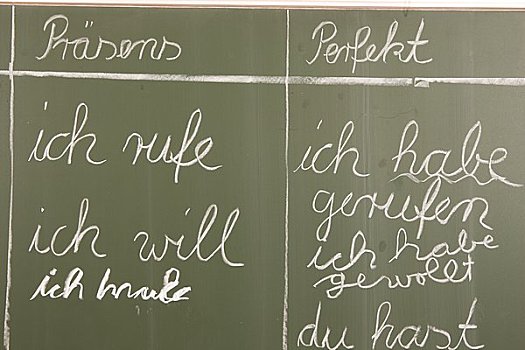 Präsens
Perfekt
ich rufe
ich will
ich
ich habe
gerufen
ich habe
gewollt
du hast